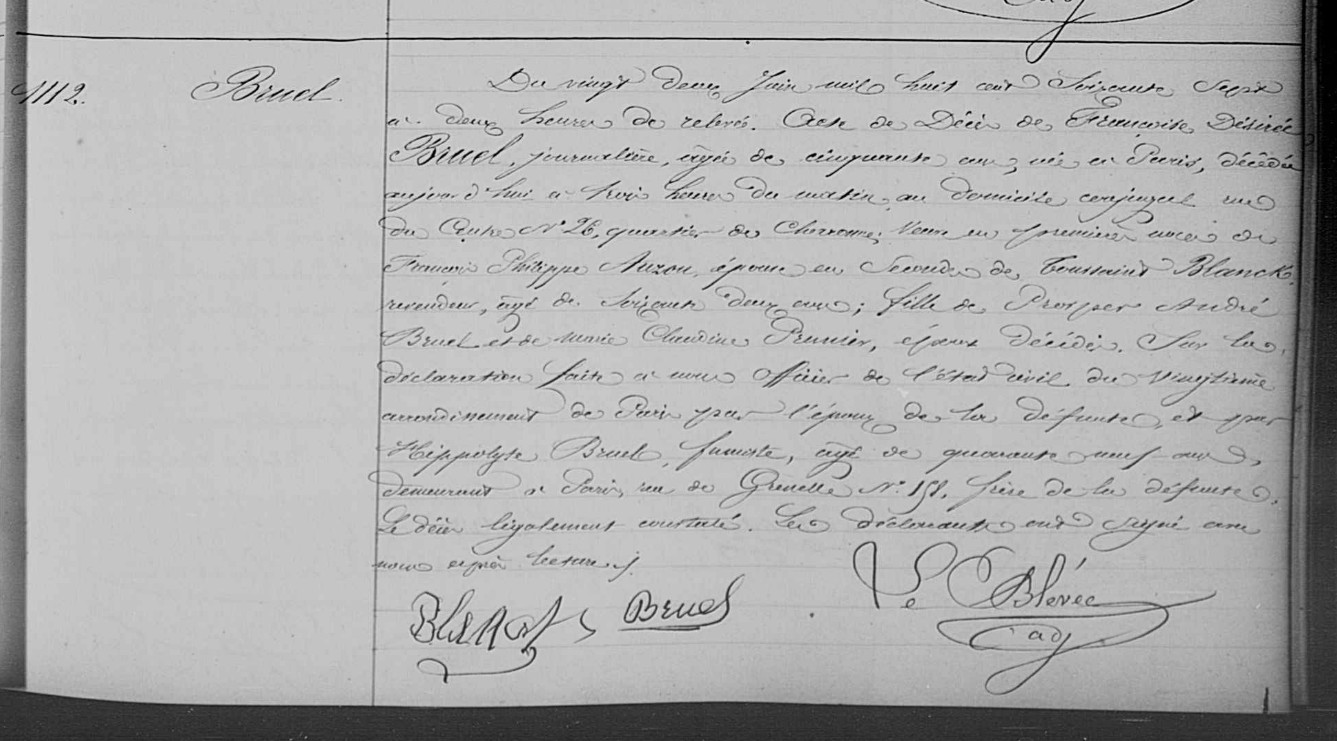 1112. Bruel.
Du vingt deux Juin mil huit cent Soixante Sept
à deux heures de relevée. Acte de Décès de Françoise Désirée
Bruel, journalière, agée de cinquante ans, née à Paris, décédée
aujourd'hui à trois heures du matin, au domicile conjugal rue
du Centre N° 26, quartier de Charonne; Veuve en premières noces de
François Philippe Auzou, épouse en Secondes de Toussaint Blanck,
revendeur, agé de Soixante deux ans; fille de Prosper André
Bruel et de Marie Claudine Prunier, époux décédés. Sur la
déclaration faite à nous officier de l'état civil du Vingtième
arrondissement de Paris par l'époux de la défunte, et par
Hippolyte Bruel, fumiste, agé de quarante neuf ans,
demeurant à Paris, rue de Grenelle N° 151, frère de la défunte.
Le décès légalement constaté. Les déclarants ont signé avec
nous après lecture.
Bruel
Le Blévec
adj